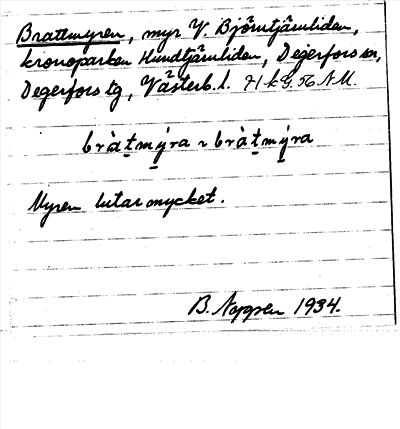 Brattmyren, myr V. Björntjärnliden,
kronoparken Hundtjärnliden, Degerfors sn,
Degerfors tg, Västerb. l. 71 k G. 56 N.M.
bràt̲mýra ~ bràt̲mýra
Myren lutar mycket.
B. 1934.